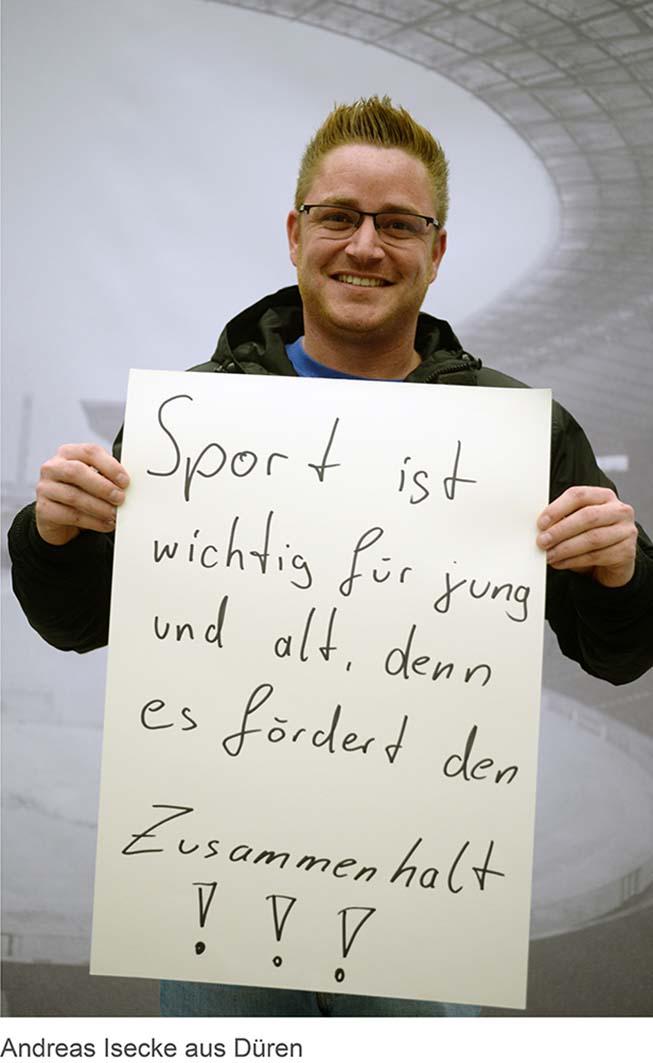 Sport ist
wichtig für jung
und alt, denn
es fördert den
Zusammenhalt
!!!
Andreas Isecke aus Düren